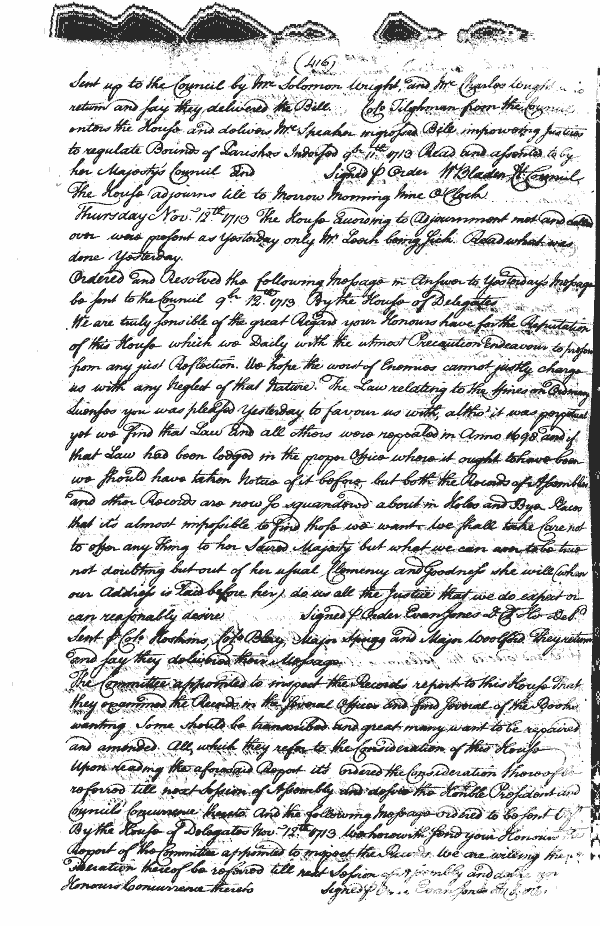 (416)
Sent up to the Council by Mr. Solomon Wright, and Mr. Charles Wright
return and say they delivered the Bill. Colo Tilghman from the Council
enters the House and delivers Mr. Speaker ingrossed Bill impowering Justices
to regulate Bounds of Parishes Indorsed 9br 11th 1713 Read and assented to by
her Majestys Council and Signed p Order W Bladen Cl Council
The House adjourns till to Morrow Morning Nine O Clock
Thursday Nov. 12th 1713 The House According to Adjournment met and called
over were present as Yesterday only Mr. Leech being Sick. Read what was
done Yesterday.
Ordered and Resolved the following Message in Answer to Yesterdays Message
be sent to the Council 9br 12th 1713 By the House of Delegates
We are truly sensible of the great Regard your Honours have for the Reputation
of this House which we Daily with the utmost Precaution Endeavour to preserve
from any just Reflection. We hope the worst of Enemies cannot justly charge
us with any Neglect of that Nature. The Law relating to the fines on Ordinary
Licenses you was pleased Yesterday to favour us with, altho' it was perpetual
yet we find that Law and all others were repealed in Anno 1698, and if
that Law had been lodged in the proper Office where it ought to have been
we should have taken Notice of it before, but both the Records of Assemblies
and other Records are now so squandered about in Holes and Bye Places
that it's almost impossible to find those we want. We shall take Care not
to offer any thing to her Sacred Majesty but what we can aver to be true
not doubting but out of her usual Clemency and Goodness she will (when
our Address is laid before her) do us all the Justice that we do expect or
can reasonably desire Signed p Order Evan Jones Cl Ho Del.
Sent p Colo Hoskins, Colo Blay, Major Sprigg and Major Woolford they return
and say they delivered their Message.
The Committee appointed to inspect the Records report to this House That
they examined the Records in the several Offices and find several of the Books
wanting. Some should be transcribed and great many want to be repaired
and amended. All, which they refer to the Consideration of this House
Upon reading the aforesaid Report it's ordered the Consideration thereof be
referred till next Session of Assembly and desire the Honble President and
Council's Concurrence thereto. And the following Message ordered to be sent
By the House of Delegates Nov. 12th 1713 We herewith send your Honours
Report of the Committee appointed to inspect the Records. We are willing the
Consideration thereof be referred till next Session of Assembly and desire your
Honours Concurrence thereto Signed p Order Evan Jones